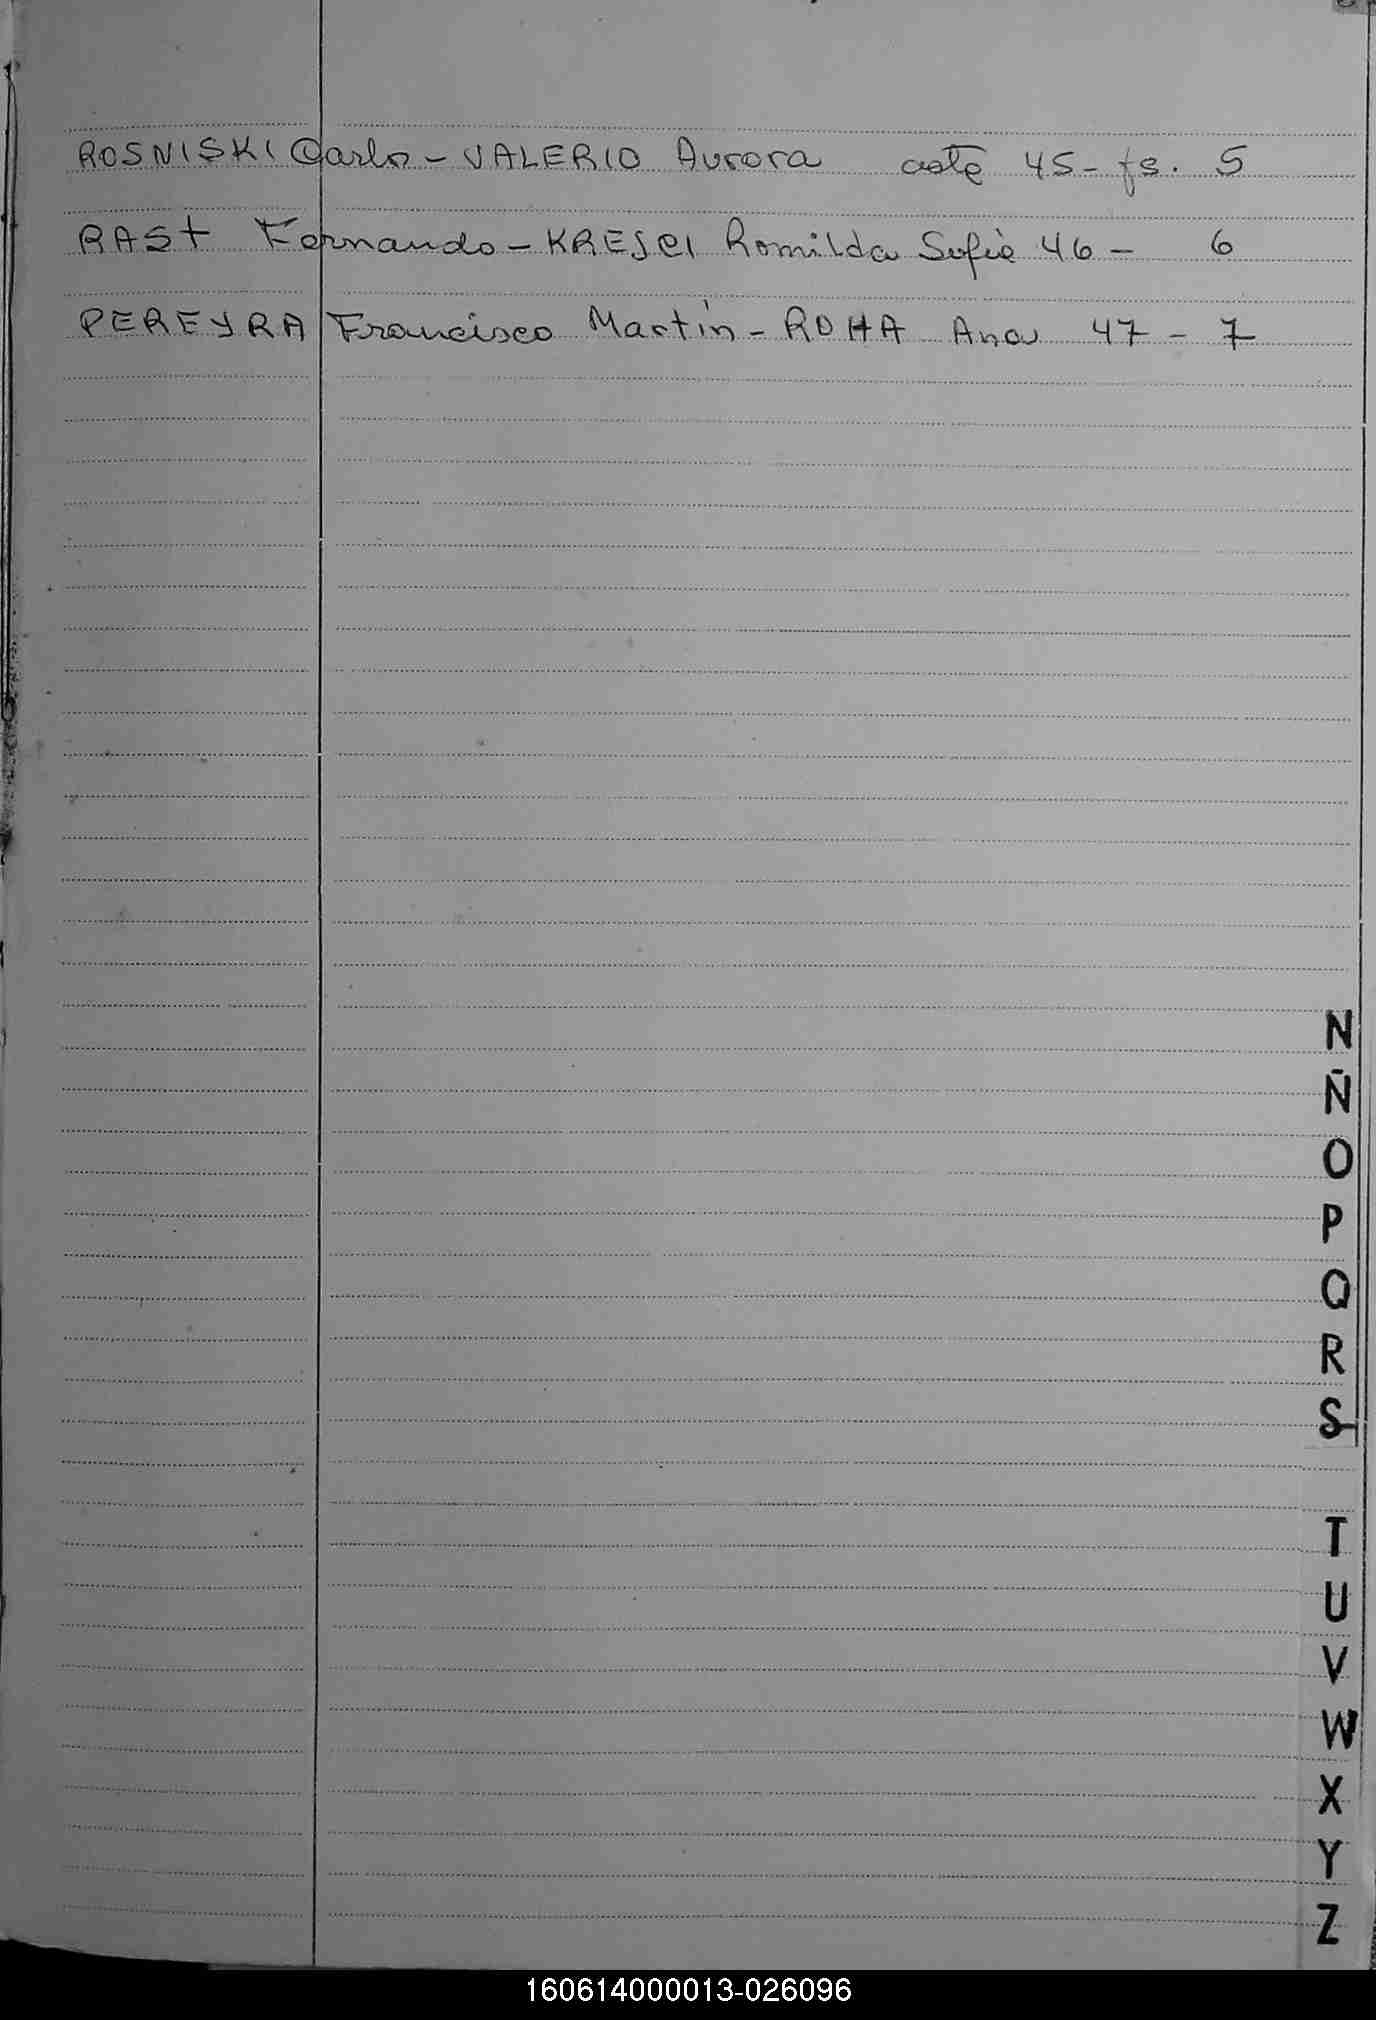 ROSNISKI Carlo - VALERIO Aurora acta 45 - fs. 5
RAST Fernando - KRESCI Romilda Sofia 46 - 6
PEREYRA Francisco Martin - ROHA Ana 47 - 7
N
Ñ
O
P
Q
R
S
T
U
V
W
X
Y
Z
160614000013-026096